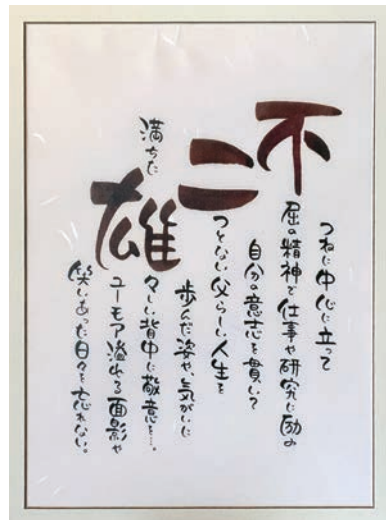 つねに中心に立って
不屈の精神で仕事や研究に励み
自分の意志を貫いて
二つとない父らしい人生を
歩んだ姿や、気がいに
満ちた雄々しい背中に敬意を…。
ユーモア溢れる面影や
笑いあった日々を忘れない。